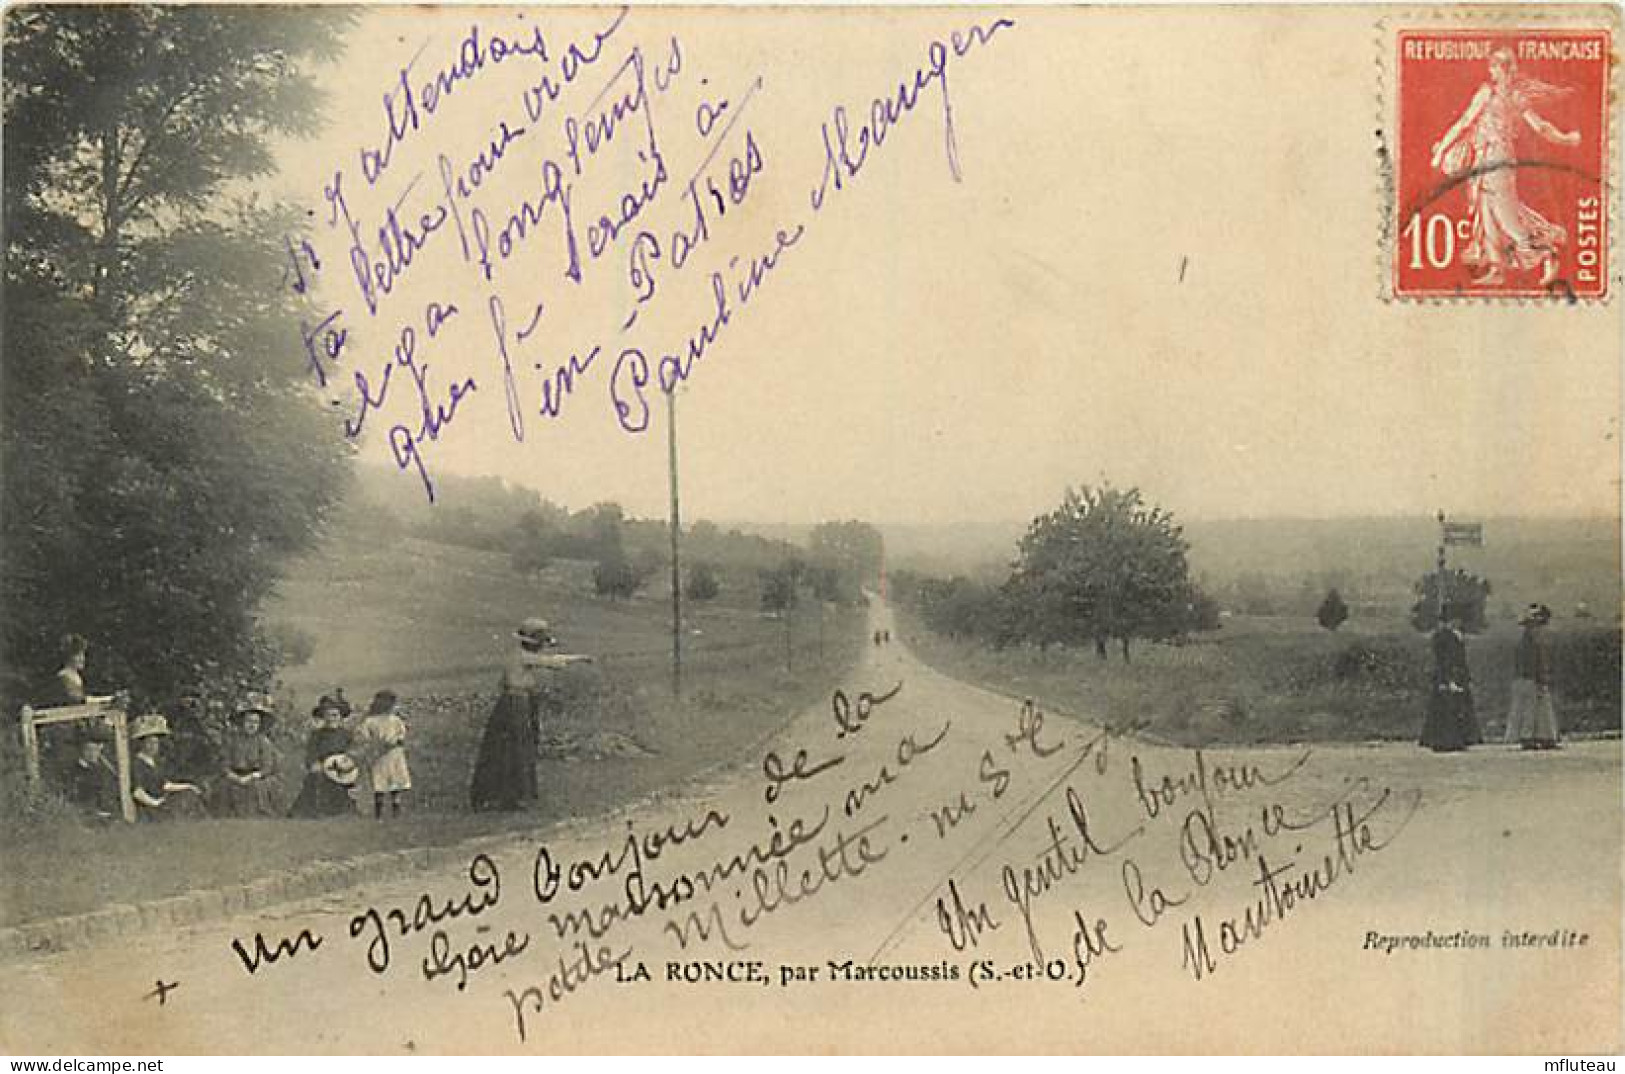 si j'attendais
ta lettre pour écrire
il y a longtemps
que je serais à
in-Patres
Pauline Mauger
REPUBLIQUE FRANÇAISE
10c
POSTES
un grand bonjour de la
chère maisonnée ma
petite Millette.
Un gentil bonjour
de la Ronce
Mantoinette
LA RONCE, par Marcoussis (S.-et-O.)
Reproduction interdite
delcampe.net
mfluteau